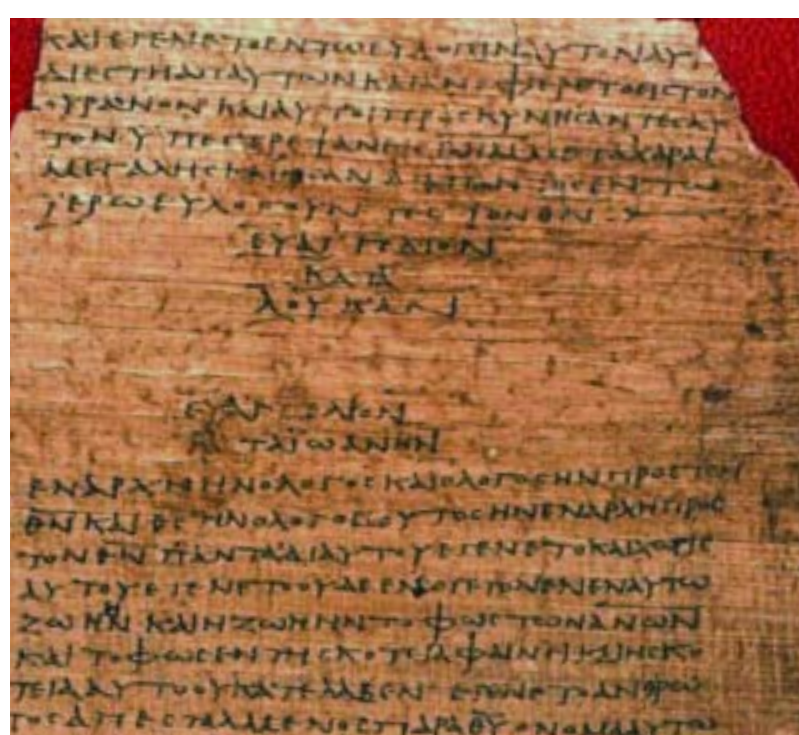 ΚΑΙ ΕΓΕΝΕΤΟ ΕΝ ΤΩ ΕΥΛΟΓΕΙΝ ΑΥΤΟΝ ΑΥ
ΔΙΕΣΤΗ ΑΠ ΑΥΤΩΝ ΚΑΙ ΑΝΕΦΕΡΕΤΟ ΕΙΣ ΤΟΝ
ΟΥΡΑΝΟΝ ΚΑΙ ΑΥΤΟΙ ΠΡΟΣΚΥΝΗΣΑΝΤΕΣ ΑΥ
ΤΟΝ ΥΠΕΣΤΡΕΨΑΝ ΕΙΣ ΧΑΡΑΣ
ΜΕΓΑΛΗΣ ΚΑΙ ΗΣΑΝ ΕΝ ΤΩ
ΙΕΡΩ ΕΥΛΟΓΟΥΝΤΕΣ ΤΟΝ ΘΝ
ΕΥΑΓΓΕΛΙΟΝ
ΚΑΤΑ
ΛΟΥΚΑΝ
ΕΥΑΓΓΕΛΙΟΝ
ΚΑΤΑ ΙΩΑΝΗΝ
ΕΝ ΑΡΧΗ ΗΝ Ο ΛΟΓΟΣ ΚΑΙ Ο ΛΟΓΟΣ ΗΝ ΠΡΟΣ ΤΟΝ
ΘΝ ΚΑΙ ΘΣ ΗΝ Ο ΛΟΓΟΣ ΟΥΤΟΣ ΗΝ ΕΝ ΑΡΧΗ ΠΡΟΣ
ΤΟΝ ΘΝ ΠΑΝΤΑ ΔΙ ΑΥΤΟΥ ΕΓΕΝΕΤΟ ΚΑΙ ΧΩΡΙΣ
ΑΥΤΟΥ ΕΓΕΝΕΤΟ ΟΥΔΕ ΕΝ Ο ΓΕΓΟΝΕΝ ΕΝ ΑΥΤΩ
ΖΩΗ ΗΝ ΚΑΙ Η ΖΩΗ ΗΝ ΤΟ ΦΩΣ ΤΩΝ ΑΝΩΝ
ΚΑΙ ΤΟ ΦΩΣ ΕΝ ΤΗ ΣΚΟΤΕΙΑ ΦΑΙΝΕΙ ΚΑΙ Η ΣΚΟ
ΤΕΙΑ ΑΥΤΟ ΟΥ ΚΑΤΕΛΑΒΕΝ ΕΓΕΝΕΤΟ ΑΝΘΡΩ
ΠΟΣ ΑΠΕΣΤΑΛΜΕΝΟΣ ΠΑΡΑ ΘΥ ΟΝΟΜΑ ΑΥΤΩ